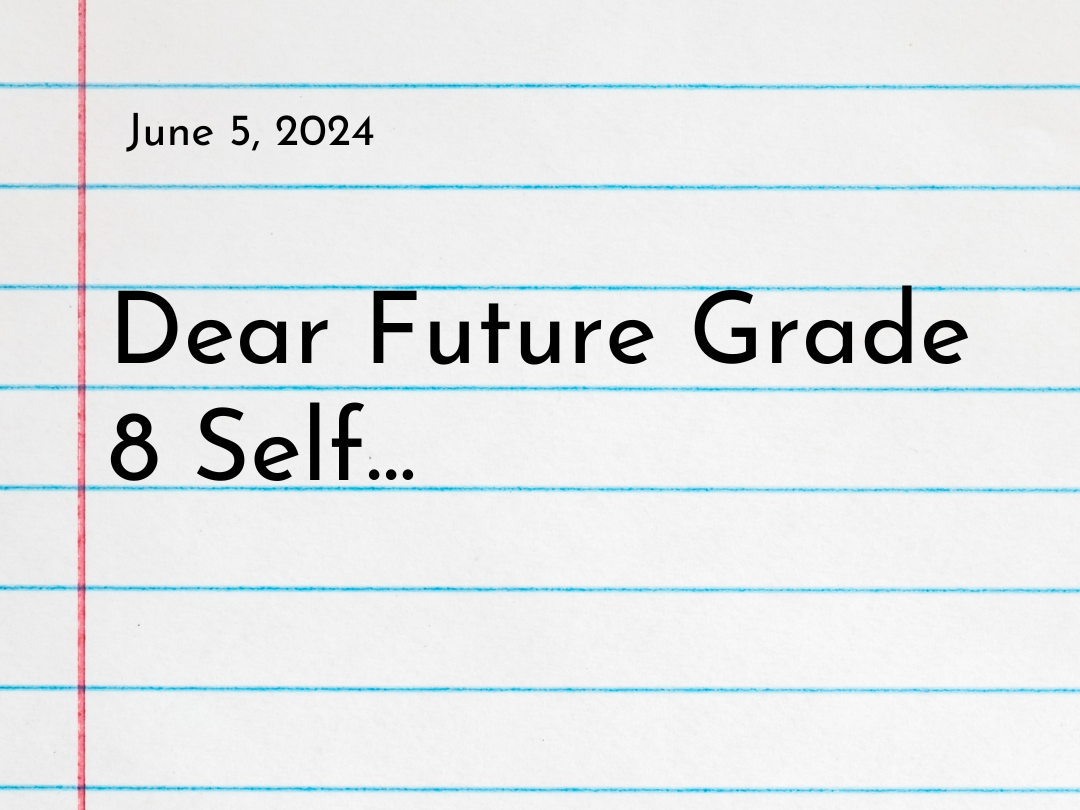 June 5, 2024
Dear Future Grade
8 Self...